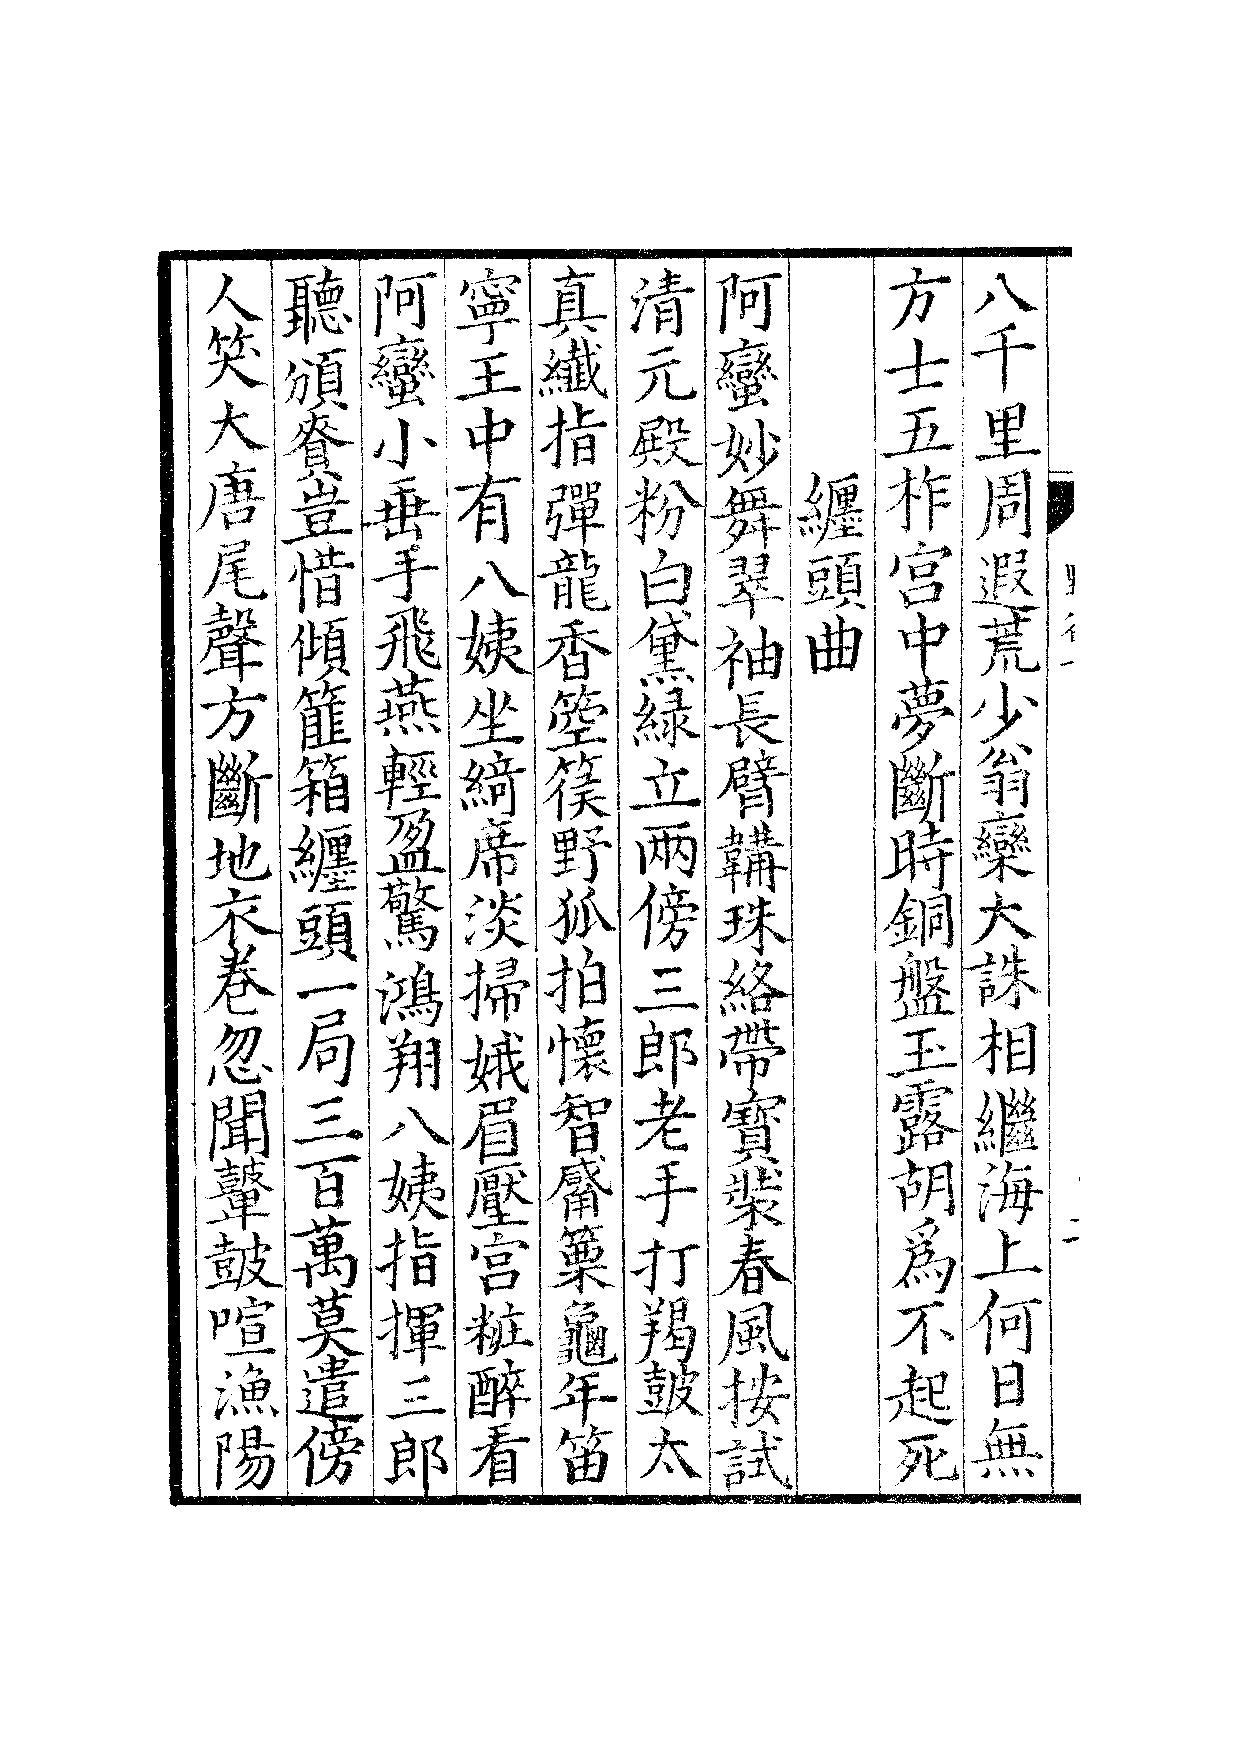 八千里周遐荒少翁欒大誅相繼海上何日無
方士五柞宫中夢斷時銅盤玉露胡爲不起死
纒頭曲
阿蠻妙舞翠袖長臂韝珠絡帶寶裝春風按試
清元殿粉白黛緑立兩傍三郎老手打羯鼓太
真纎指彈龍香箜篌野狐拍懐智觱篥龜年笛
寧王中有八姨坐綺席淡掃娥眉壓宫粧醉看
阿蠻小垂手飛燕輕盈驚鴻翔八姨指揮三郎
聽頒賚豈惜傾篚箱纒頭一局三百萬莫遣傍
人笑大唐尾聲方斷地衣卷忽聞鼙鼓喧漁陽